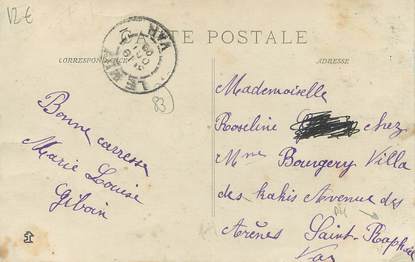 12€
CARTE POSTALE
CORRESPONDANCE
ADRESSE
LE MUY
VAR
83
Bonne caresse
Marie Louise
Giboin
Mademoiselle
Roseline chez
Mme Bougery Villa
des kakis Avenue des
Arènes Saint-Raphaël
Var